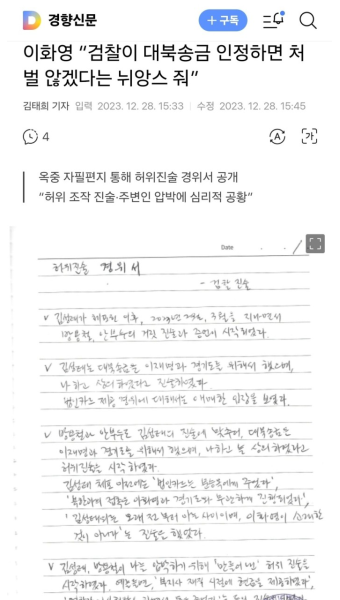 경향신문
+ 구독
이화영 “검찰이 대북송금 인정하면 처
벌 않겠다는 뉘앙스 줘”
김태희 기자 입력 2023. 12. 28. 15:33 수정 2023. 12. 28. 15:45
4
가
옥중 자필편지 통해 허위진술 경위서 공개
“허위 조작 진술·주변인 압박에 심리적 공황”
Date . .
허위진술 경위서
- 검찰 진술
∨ 김성태가 체포된 이후, 2023년 2월, 3월을 지나면서
방용철, 안부수의 거짓 진술과 증언이 시작되었다.
∨ 김성태는 대북송금은 이재명과 경기도를 위해서 했으며,
나하고 상의하였다고 진술하였다.
법인카드 제공 경위에 대해서는 애매한 입장을 보였다.
∨ 방용철과 안부수도 김성태의 진술에 맞추어, 대북송금은
이재명과 경기도를 위해서 했으며, 나하고 늘 상의하였다고
허위진술을 시작하였다.
김성태 체포 이전에는 '법인카드는 에게 주었다',
'북한과의 접촉은 이화영과 경기도와 무관하게 진행되었다',
'김성태와는 오래 전부터 아는 사이이며, 이화영이 소개한
것이 아니다'는 진술을 했었다.
∨ 김성태, 방용철이 나를 압박하기 위해 '만들어 낸' 허위 진술을
시작하였다. 예를 들면, '부지사 재직 시절에 현금을 제공하였다',